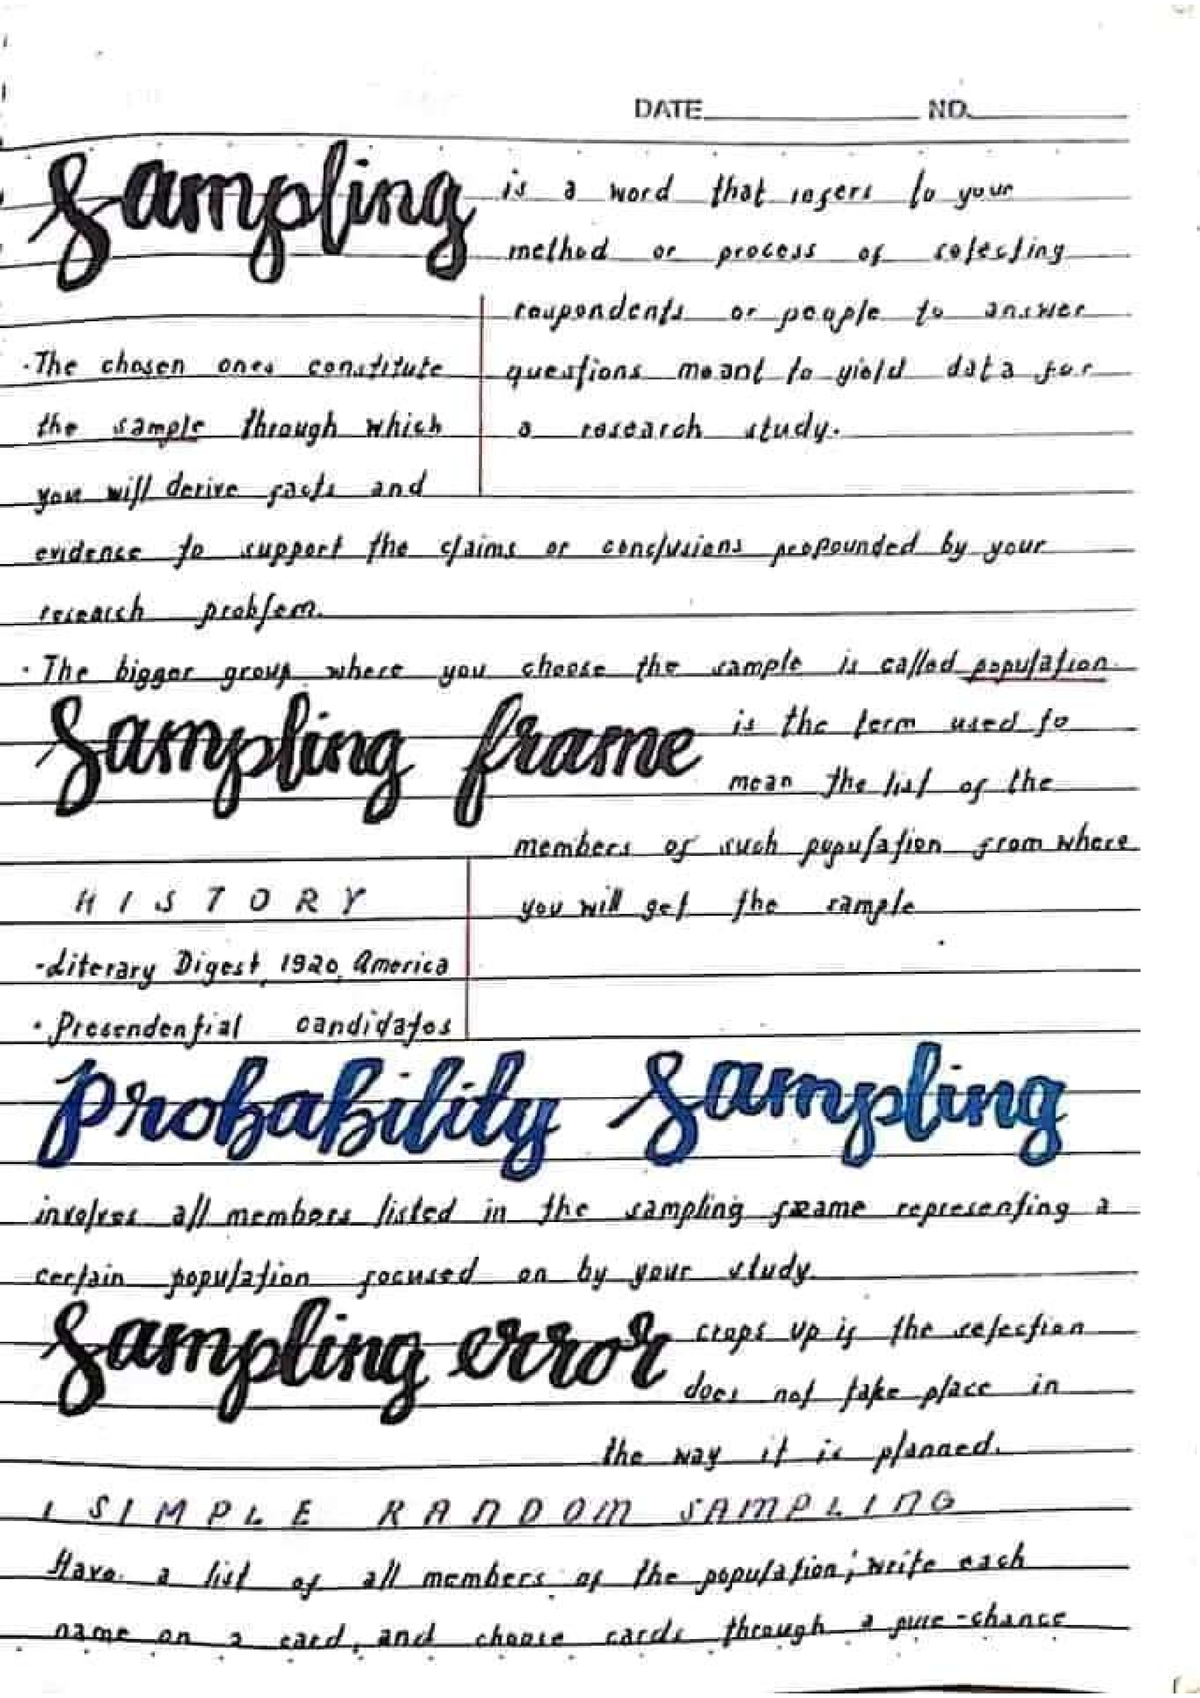 DATE NO.
Sampling is a word that refers to your
method or process of selecting
respondents or people to answer
questions meant to yield data for
a research study.
· The chosen ones constitute
the sample through which
you will derive facts and
evidence to support the claims or conclusions propounded by your
research problem.
· The bigger group where you choose the sample is called population.
Sampling frame is the term used to
mean the list of the
members of such population from where
you will get the sample
HISTORY
-Literary Digest, 1920, America
· Presendential candidates
Probability Sampling
involves all members listed in the sampling frame representing a
certain population focused on by your study.
Sampling error crops up if the selection
does not take place in
the way it is planned.
1 SIMPLE RANDOM SAMPLING
Have a list of all members of the population; write each
name on a card, and choose cards through a pure-chance